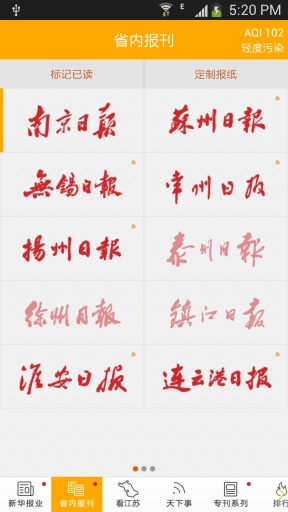 E 5:20 PM
省内报刊
AQI 102
轻度污染
标记已读 定制报纸
南京日報 蘇州日報
無錫日報 常州日报
揚州日報 泰州日報
徐州日報 鎮江日報
淮安日报 连云港日报
新华报业 省内报刊 看江苏 天下事 专刊系列 排行